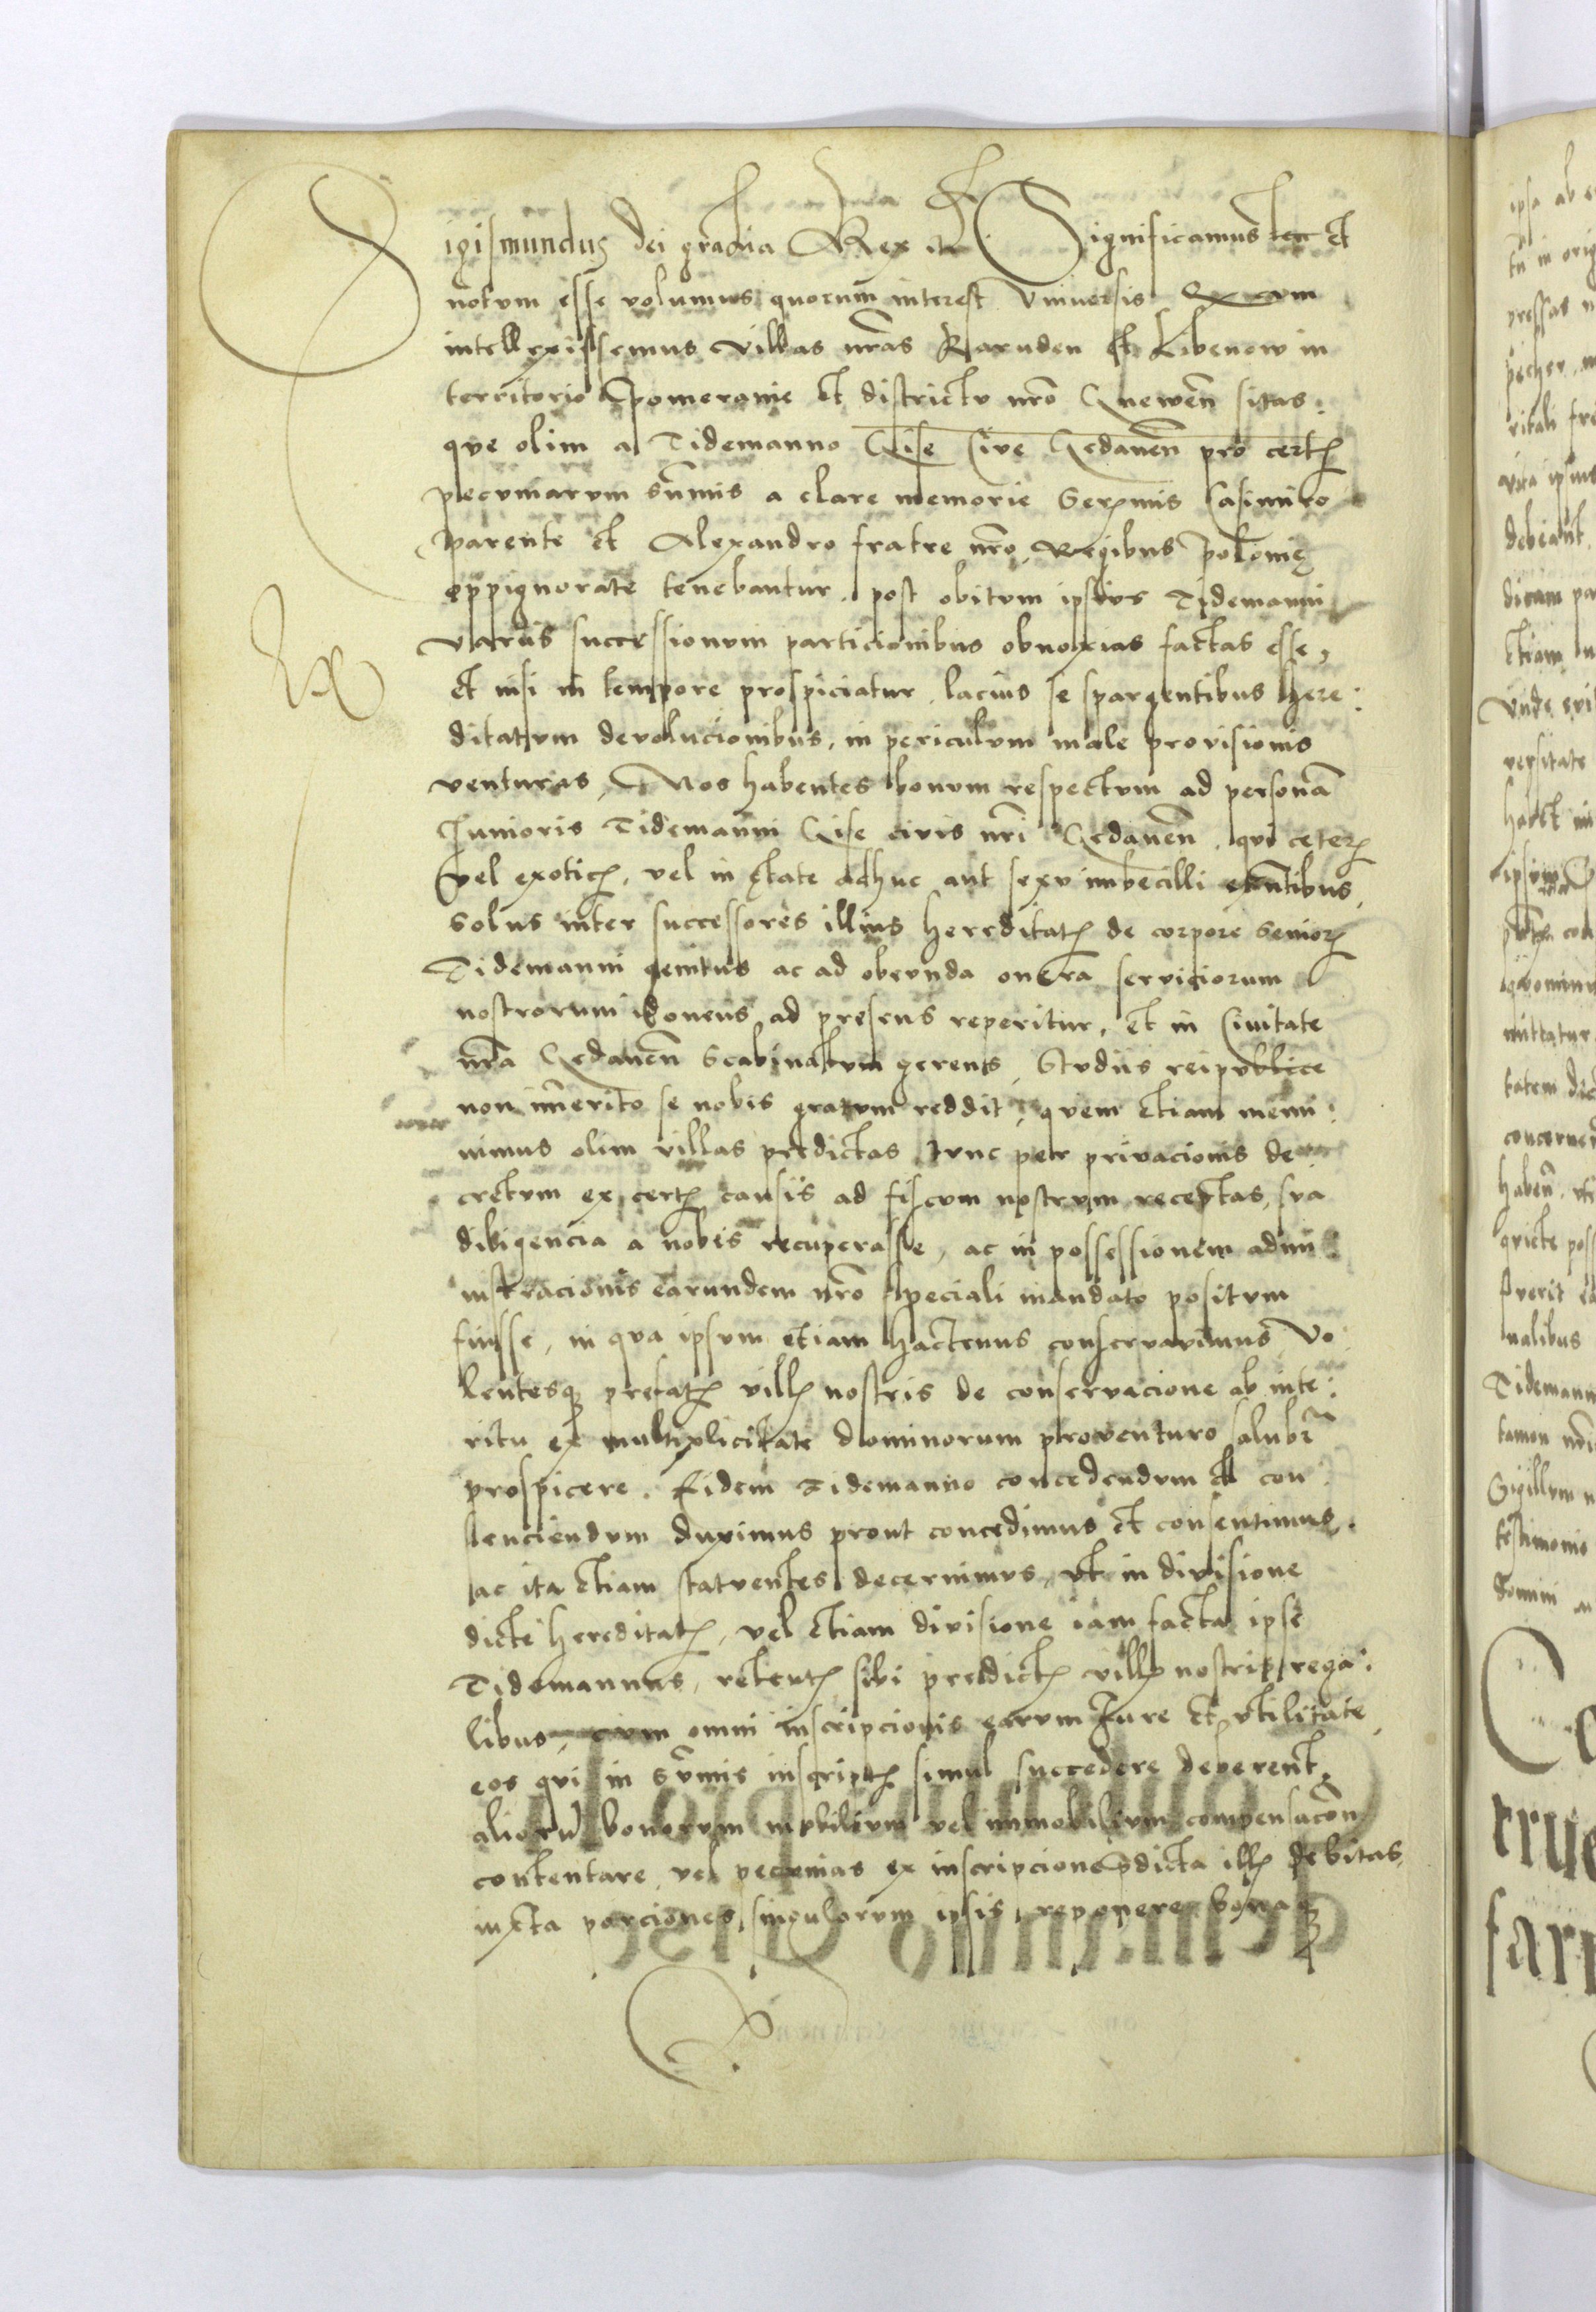 Sigismundus dei gratia Rex etc Significamus ten et
notum esse volumus quorum interest Vniuersis Quum
intellexissemus villas nras Rauden et Libenow in
territorio Pomeranie et districtu nro Gnewen sitas.
que olim a Tidemanno Gise Cive Gedanen pro certis
pecuniarum summis a clare memorie Serenmis Casimiro
parente et Alexandro fratre nro Regibus Polonie
oppignorate tenebantur. post obitum ipsius Tidemanni
variis successionum particionibus obnoxias factas esse,
et nisi in tempore prospiciatur lacius se spargentibus here:
ditatum devolucionibus, in periculum male provisionis
venturas, Nos habentes bonum respectum ad persona
Junioris Tidemanni Gise civis nri Gedanen, qui ceteris
vel exoticis, vel in etate adhuc aut sexu imbecilli extantibus,
solus inter successores illius hereditatis de corpore senioris
Tidemanni genitus ac ad obeunda onera serviciorum
nostrorum idoneus ad presens reperitur, et in Civitate
nra Gedanen Scabinatum gerens, Studiis reipublice
non immerito se nobis gratum reddit, quem etiam memi:
nimus olim villas predictas tunc per privacionis de
cretum ex certis causis ad fiscum nostrum receptas, sua
diligencia a nobis recuperasse, ac in possessionem admi
nistracionis earundem nro speciali mandato positum
fuisse, in qua ipsum etiam hactenus conservavimus Vo
lentesque prefatis villis nostris de conservacione ab inte:
ritu ex multiplicitate dominorum proventuro salubr
prospicere. Eidem Tidemanno concedendum et con
senciendum duximus prout concedimus et consentimus.
ac ita etiam statuentes decernimus, vt in divisione
dicte hereditatis, vel etiam divisione iam facta ipse
Tidemannus, retentis sibi predictis villis nostris rega:
libus, cum omni inscripcionis earum Jure et vtilitate
eos qui in summis inscriptis simul succedere deberent,
alioru bonorum mobilium vel immobilium compensacon
contentare, vel pecunias ex inscripcione pdicta illis debitas
iuxta porciones singulorum ipsis reponere bonaque